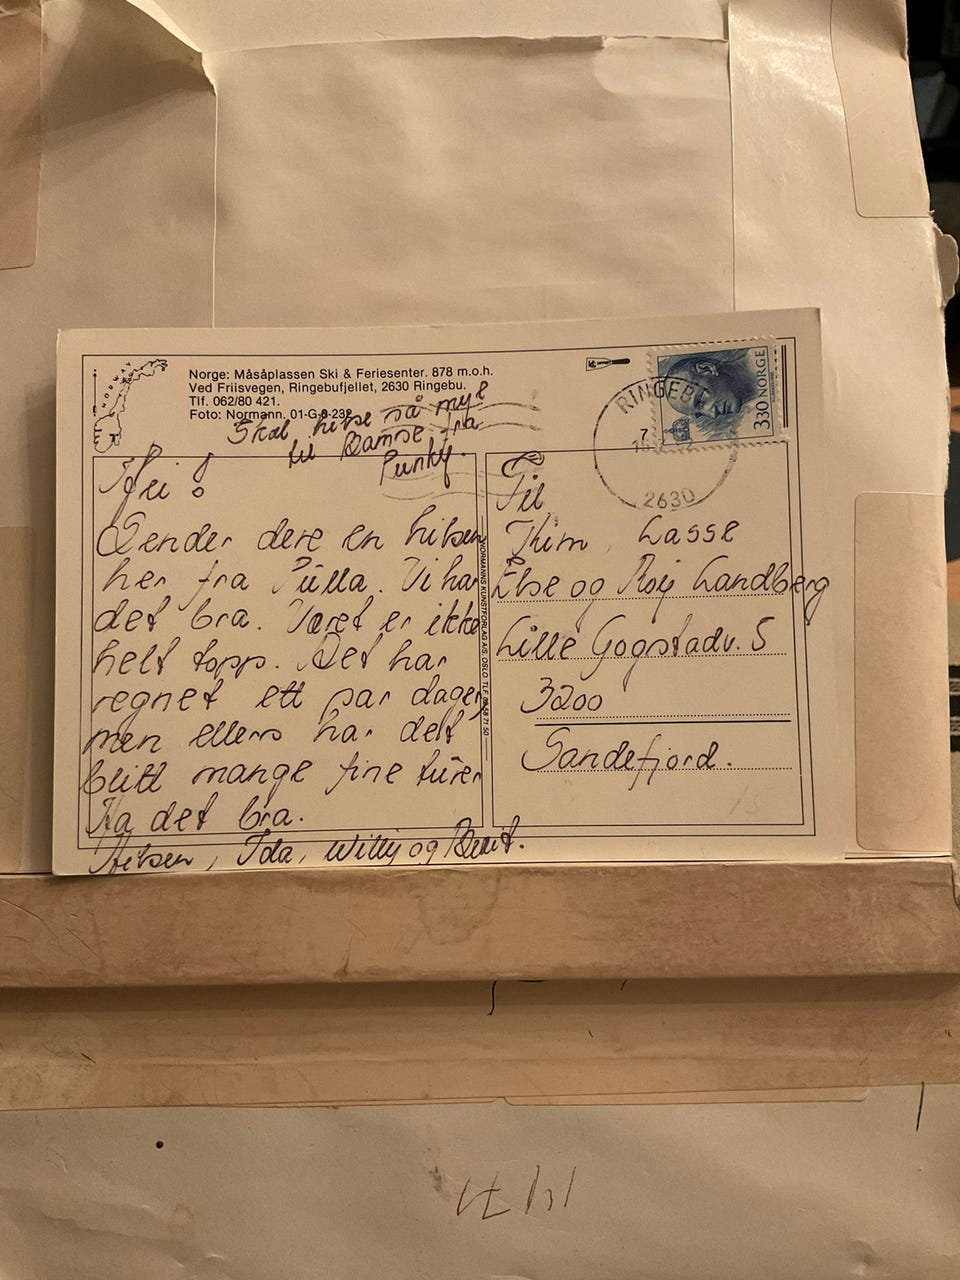 NORGE
Norge: Måsåplassen Ski & Feriesenter. 878 m.o.h.
Ved Friisvegen, Ringebufjellet, 2630 Ringebu.
Tlf. 062/80 421.
Foto: Normann, 01-G-9-232
Skal hilse så mye
til Bamse fra
Punky.
330 NORGE
RINGEBU
7
2630
Hei!
Sender dere en hilsen
her fra Pulla. Vi har
det bra. Været er ikke
helt topp. Det har
regnet ett par dager,
men ellers har det
blitt mange fine turer
Ha det bra.
Hilsen, Ida, Willy og Berit.
NORMANNS KUNSTFORLAG A/S, OSLO. TLF.
Til
Thim, Lasse
Else og Roy Landberg
Lille Gogstadv. 5
3200
Sandefjord.